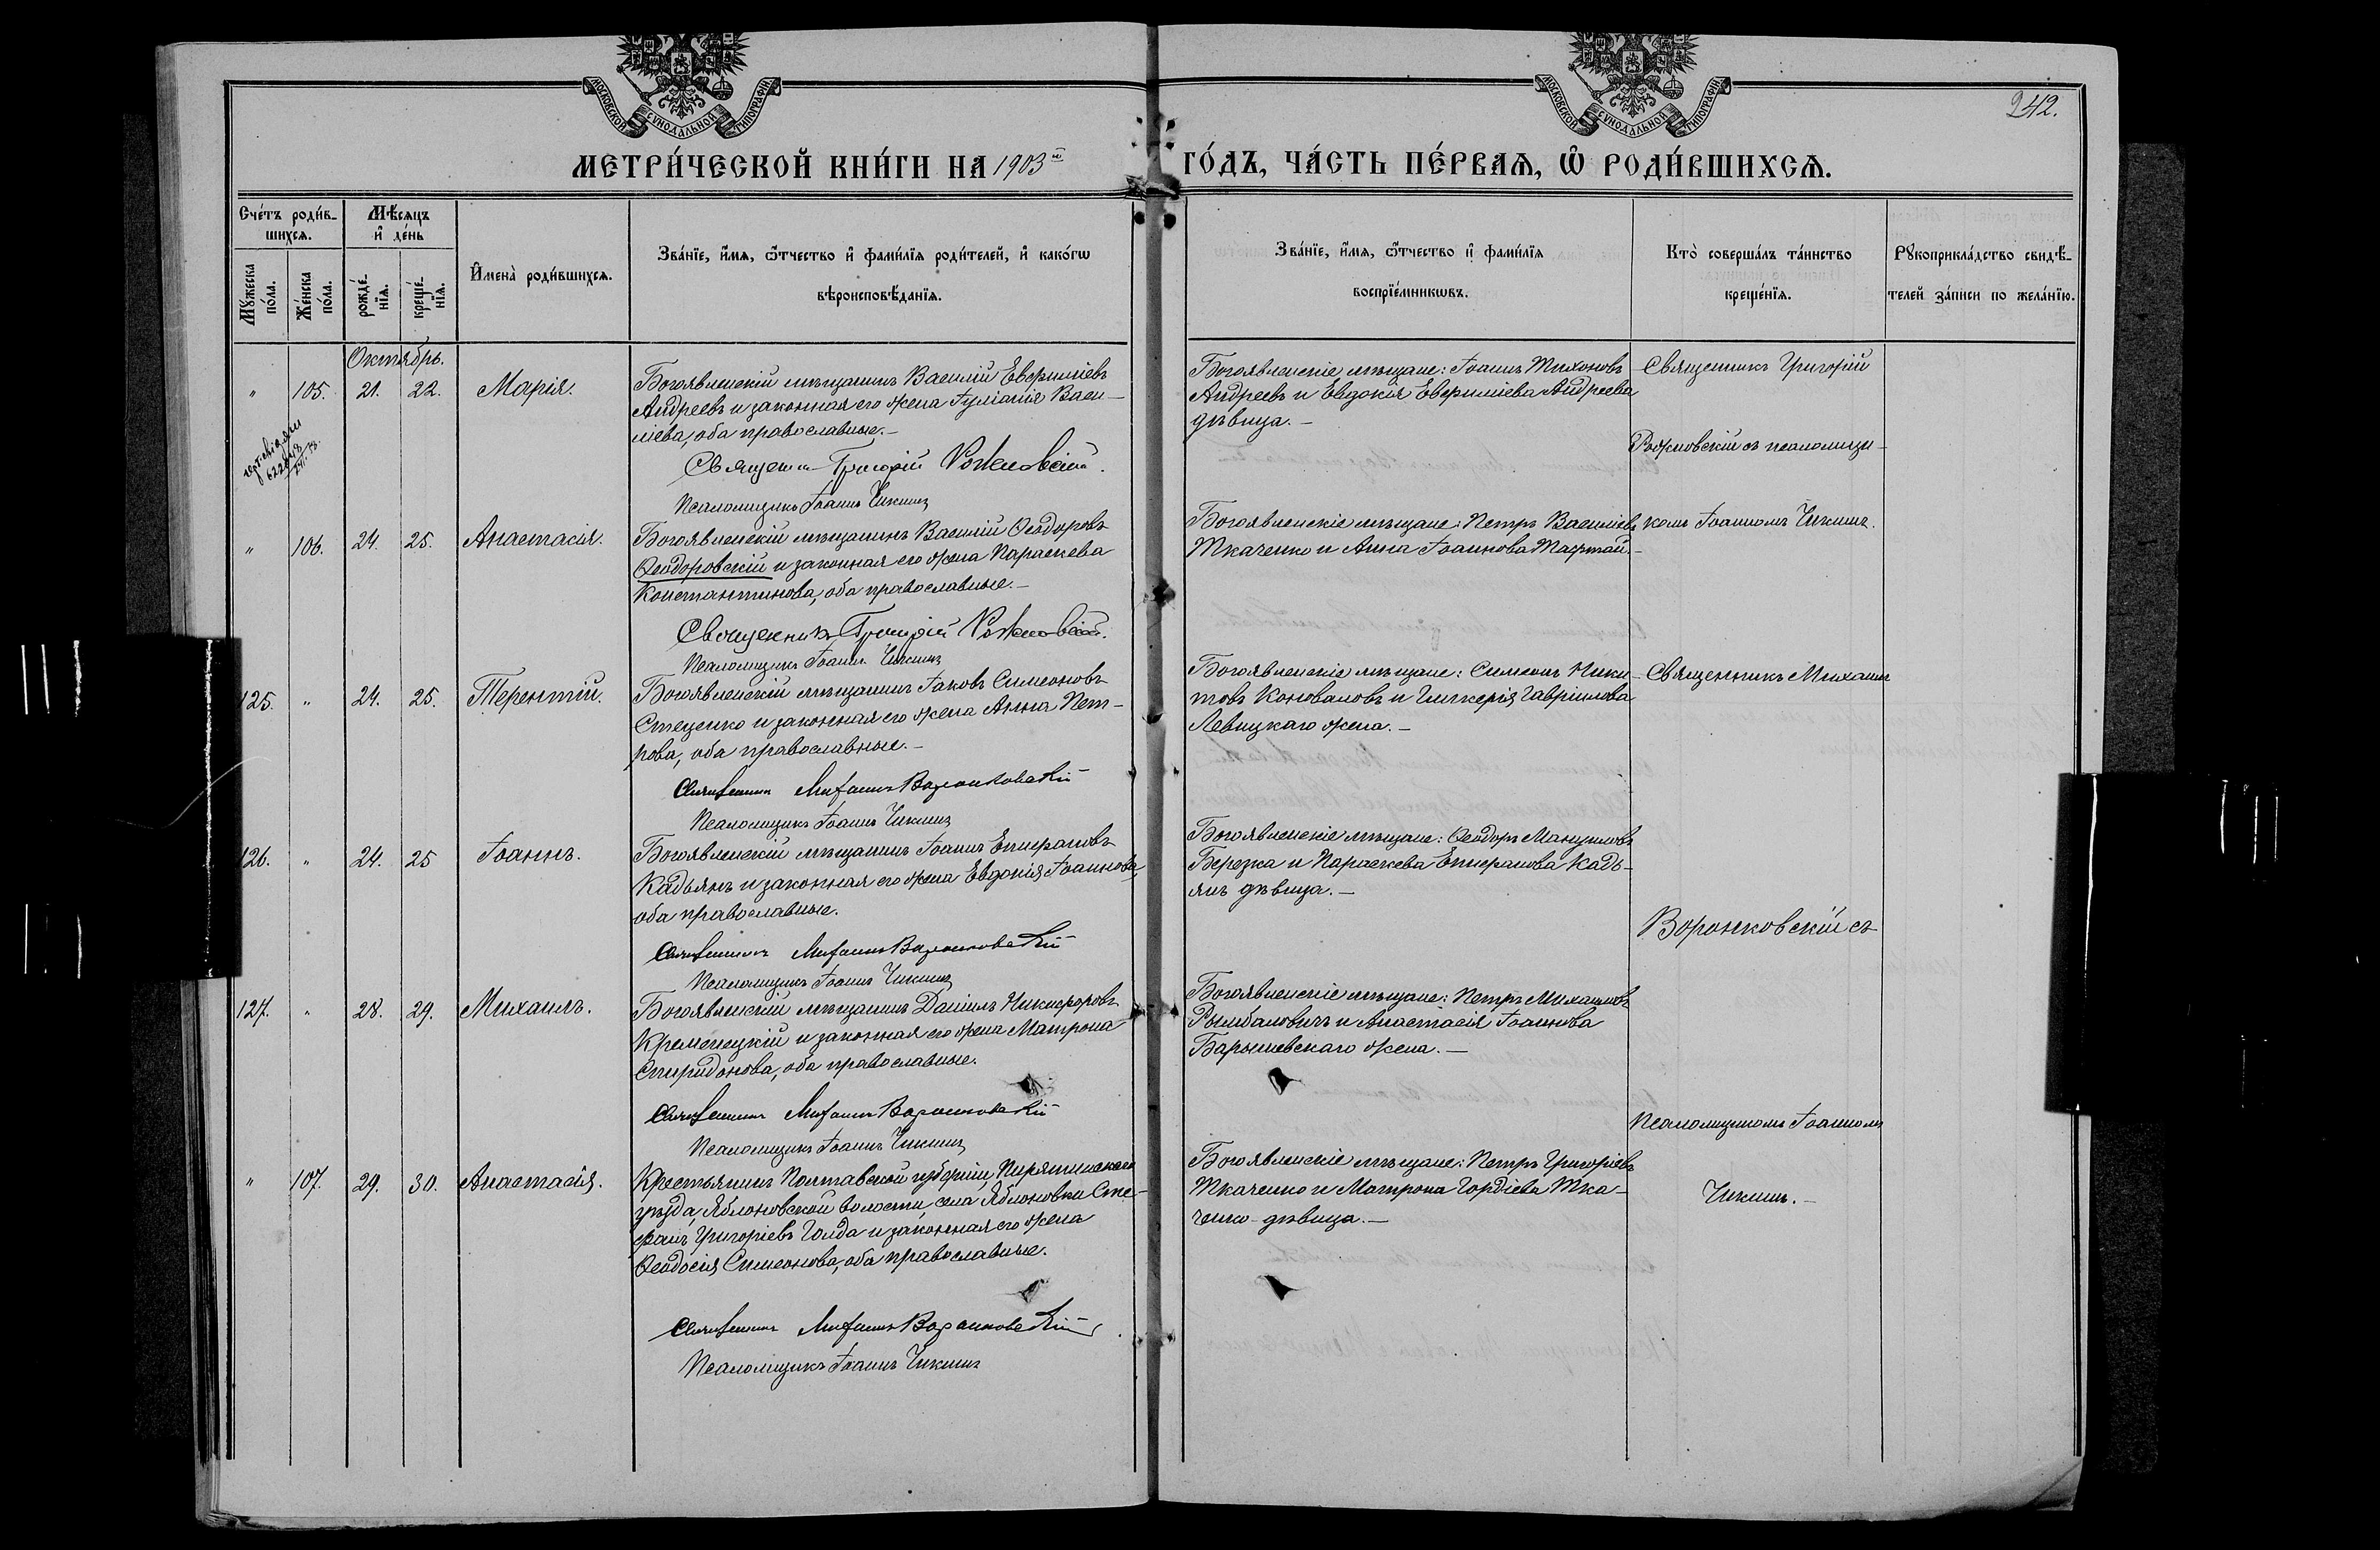 МОСКОВСКОЙ СѴНОДАЛЬНОЙ ТИПОГРАФІИ
МОСКОВСКОЙ СѴНОДАЛЬНОЙ ТИПОГРАФІИ
242.
МЕТРИ́ЧЕСКОЙ КНИ́ГИ НА 1903й ГО́ДЪ, ЧА́СТЬ ПЕ́РВАѦ, Ѽ РОДИ́ВШИХСѦ.
Сче́тъ роди́в-
шихсѧ.
Мꙋ́жеска по́ла.
Же́нска по́ла.
Мѣ́сѧцъ
и҆ де́нь
рожде́-
нїѧ.
креще́-
нїѧ.
И҆мена̀ роди́вшихсѧ.
Зва́нїе, и҆́мѧ, ѻ҆́тчество и҆ фами́лїѧ роди́телей, и҆ како́гѡ
вѣроисповѣ́данїѧ.
Зва́нїе, и҆́мѧ, ѻ҆́тчество и҆ фами́лїѧ
воспрїе́мникѡвъ.
Кто̀ соверша́лъ та́инство
креще́нїѧ.
Рꙋкоприкла́дство свидѣ́-
телей за́писи по жела́нїю.
Октябрь.
" 105. 21. 22. Марія.
Богоявленскій мѣщанинъ Василій Евфиміевъ
Андреевъ и законная его жена Іуліанія Васи-
ліева, оба православные.-
Священн. Григорій Рожковскій.
Псаломщикъ Іоаннъ Чикинъ
Богоявленскіе мѣщане: Іоаннъ Тихоновъ
Андреевъ и Евдокія Евфиміева Андреева
дѣвица.-
Священникъ Григорій
Рожковскій съ псаломщи-
комъ Іоанномъ Чикинъ.
" 106. 24. 25. Анастасія.
Богоявленскій мѣщанинъ Василій Ѳеодоровъ
Ѳеодоровскій и законная его жена Параскева
Константинова, оба православные.-
Священникъ Григорій Рожковскій.
Псаломщикъ Іоаннъ Чикинъ
Богоявленскіе мѣщане: Петръ Василіевъ
Ткаченко и Анна Іоаннова Тафтай.-
125. " 24. 25. Терентій.
Богоявленскій мѣщанинъ Іаковъ Симеоновъ
Стеценко и законная его жена Анна Пет-
рова, оба православные.-
Священникъ Михаилъ Воронковскій
Псаломщикъ Іоаннъ Чикинъ
Богоявленскіе мѣщане: Симеонъ Ники-
товъ Коноваловъ и Гликерія Гавріилова
Левицкаго жена.-
Священникъ Михаилъ
Воронковскій съ
Псаломщикомъ Іоанномъ
Чикинъ.-
126. " 24. 25 Іоаннъ.
Богоявленскій мѣщанинъ Іоаннъ Епифановъ
Кадьянъ и законная его жена Евдокія Іоаннова,
оба православные.
Священникъ Михаилъ Воронковскій
Псаломщикъ Іоаннъ Чикинъ
Богоявленскіе мѣщане: Ѳеодоръ Мануиловъ
Березка и Параскева Епифанова Кадь-
янъ дѣвица.-
127. " 28. 29. Михаилъ.
Богоявленскій мѣщанинъ Даніилъ Никифоровъ
Кременецкій и законная его жена Матрона
Спиридонова, оба православные.
Священникъ Михаилъ Воронковскій
Псаломщикъ Іоаннъ Чикинъ
Богоявленскіе мѣщане: Петръ Михаиловъ
Рымбаловичъ и Анастасія Іоаннова
Барышевскаго жена.-
" 107. 29. 30. Анастасія.
Крестьянинъ Полтавской губерніи, Пирятинскаго
уѣзда, Яблоновской волости, села Яблоновки Сте-
фанъ Григоріевъ Голда и законная его жена
Ѳеодосія Симеонова, оба православные.
Священникъ Михаилъ Воронковскій
Псаломщикъ Іоаннъ Чикинъ
Богоявленскіе мѣщане: Петръ Григоріевъ
Ткаченко и Матрона Гордіева Тка-
ченко-дѣвица.-